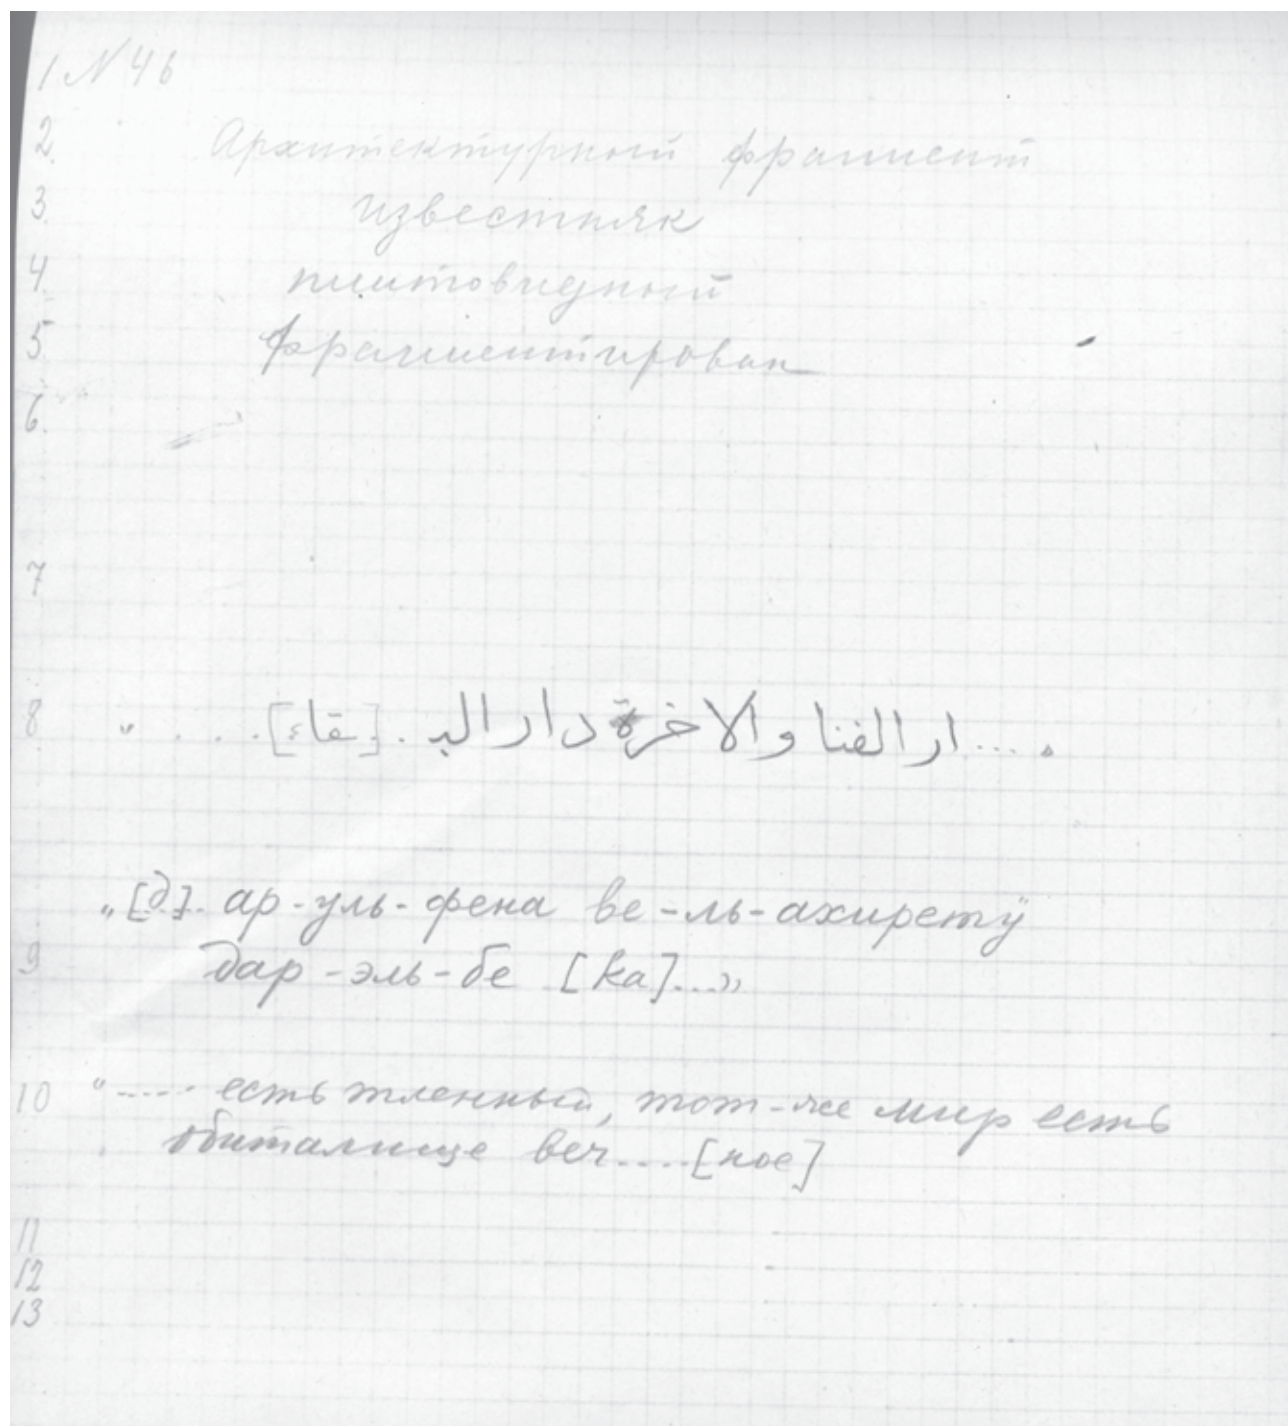 1 N 46
2. Архитектурный фрагмент
3. известняк
4. плитовидный
5. фрагментирован
6.
7
8 " .... ار الفنا والاخرة دار البـ .[قاء]. . . . "
„[д]. ар-уль-фена ве-ль-ахиретӱ
9 дар-эль-бе [ка]...»
10 "..... есть тленный, тот-же мир есть
обиталище веч....[ное]
11
12
13